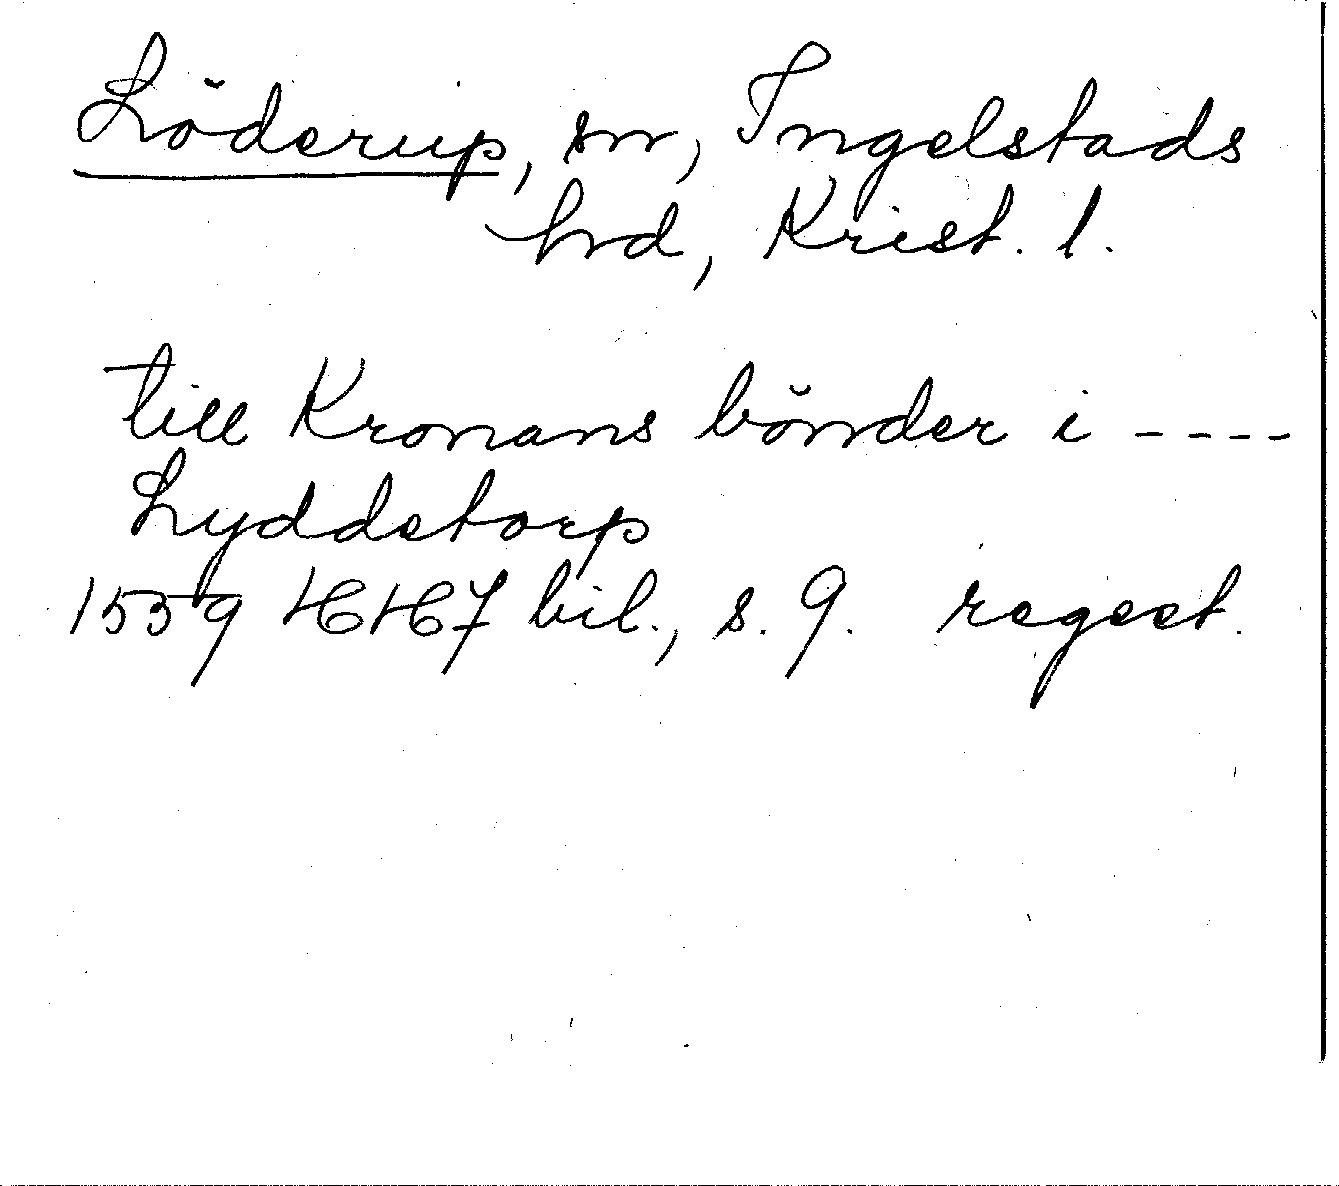 Löderup, sn, Ingelstads
hd, Krist. l.
till Kronans bönder i ----
Lyddetorp
1539 HH7 bil., s. 9. regest.